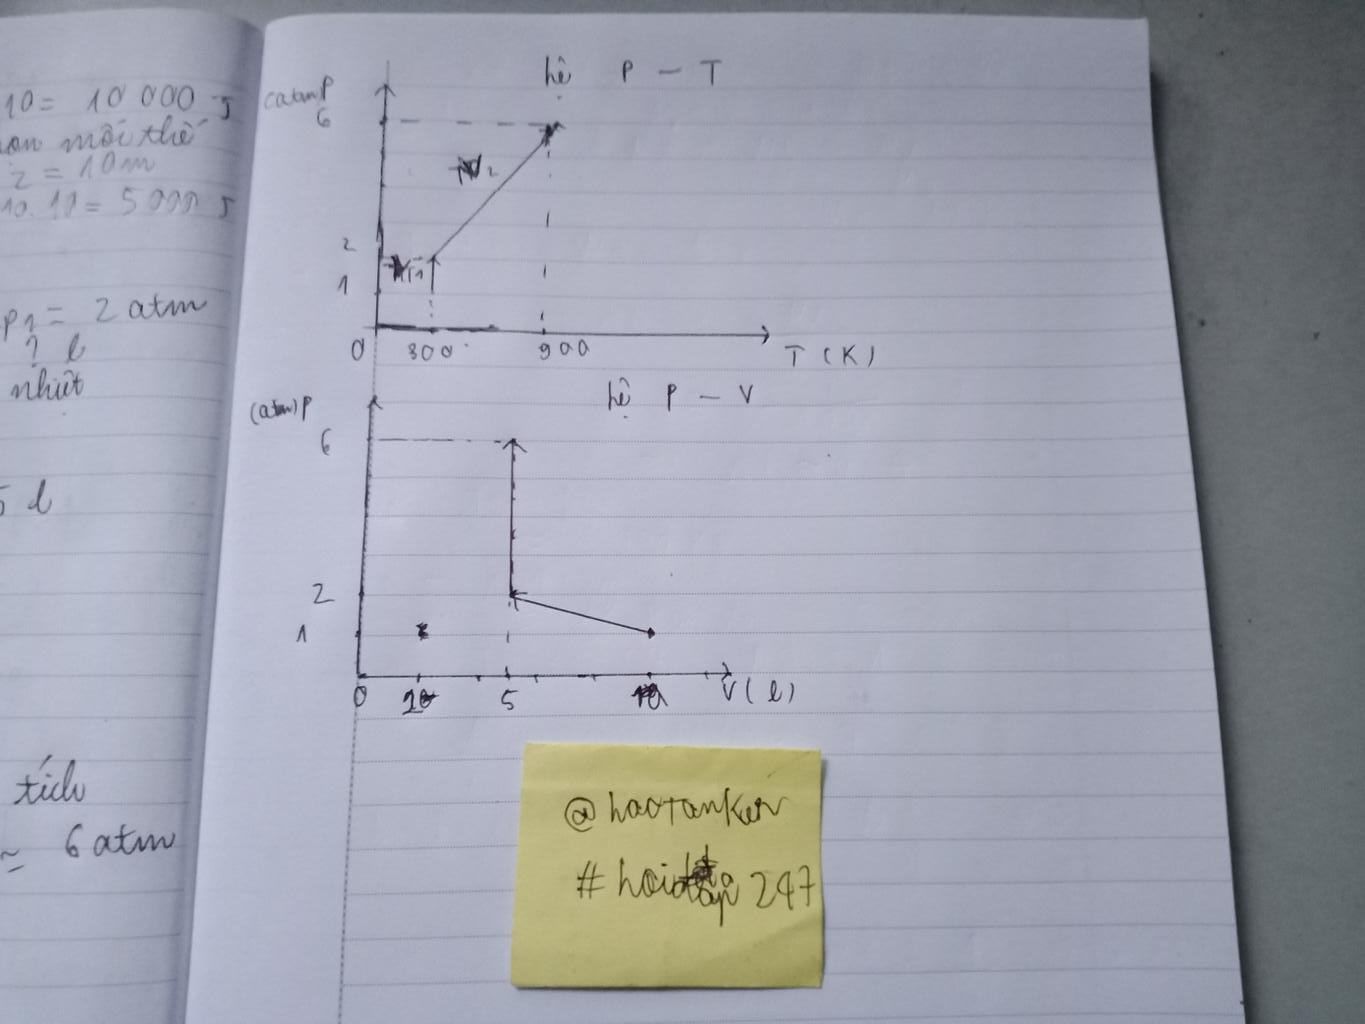 10 = 10 000 J
mối thế
2 = 10m
10. 10 = 5 000 J
P1 = 2 atm
? l
nhiệt
5 l
tích
≃ 6 atm
hệ P - T
(atm) P
6
2
1
0 300 900 T (K)
hệ P - V
(atm) P
6
2
1
0 5 10 V (l)
@haotanken
247